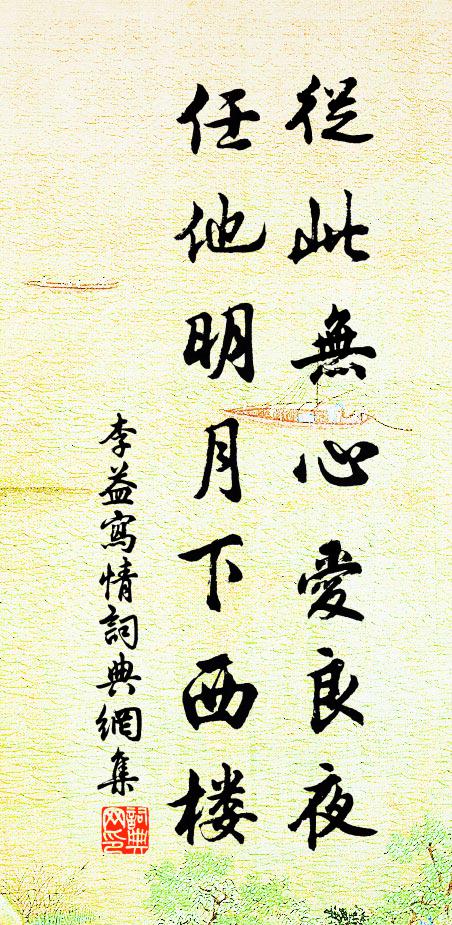 從此無心愛良夜
任他明月下西楼
李益寫情詞典網集
詞典网印